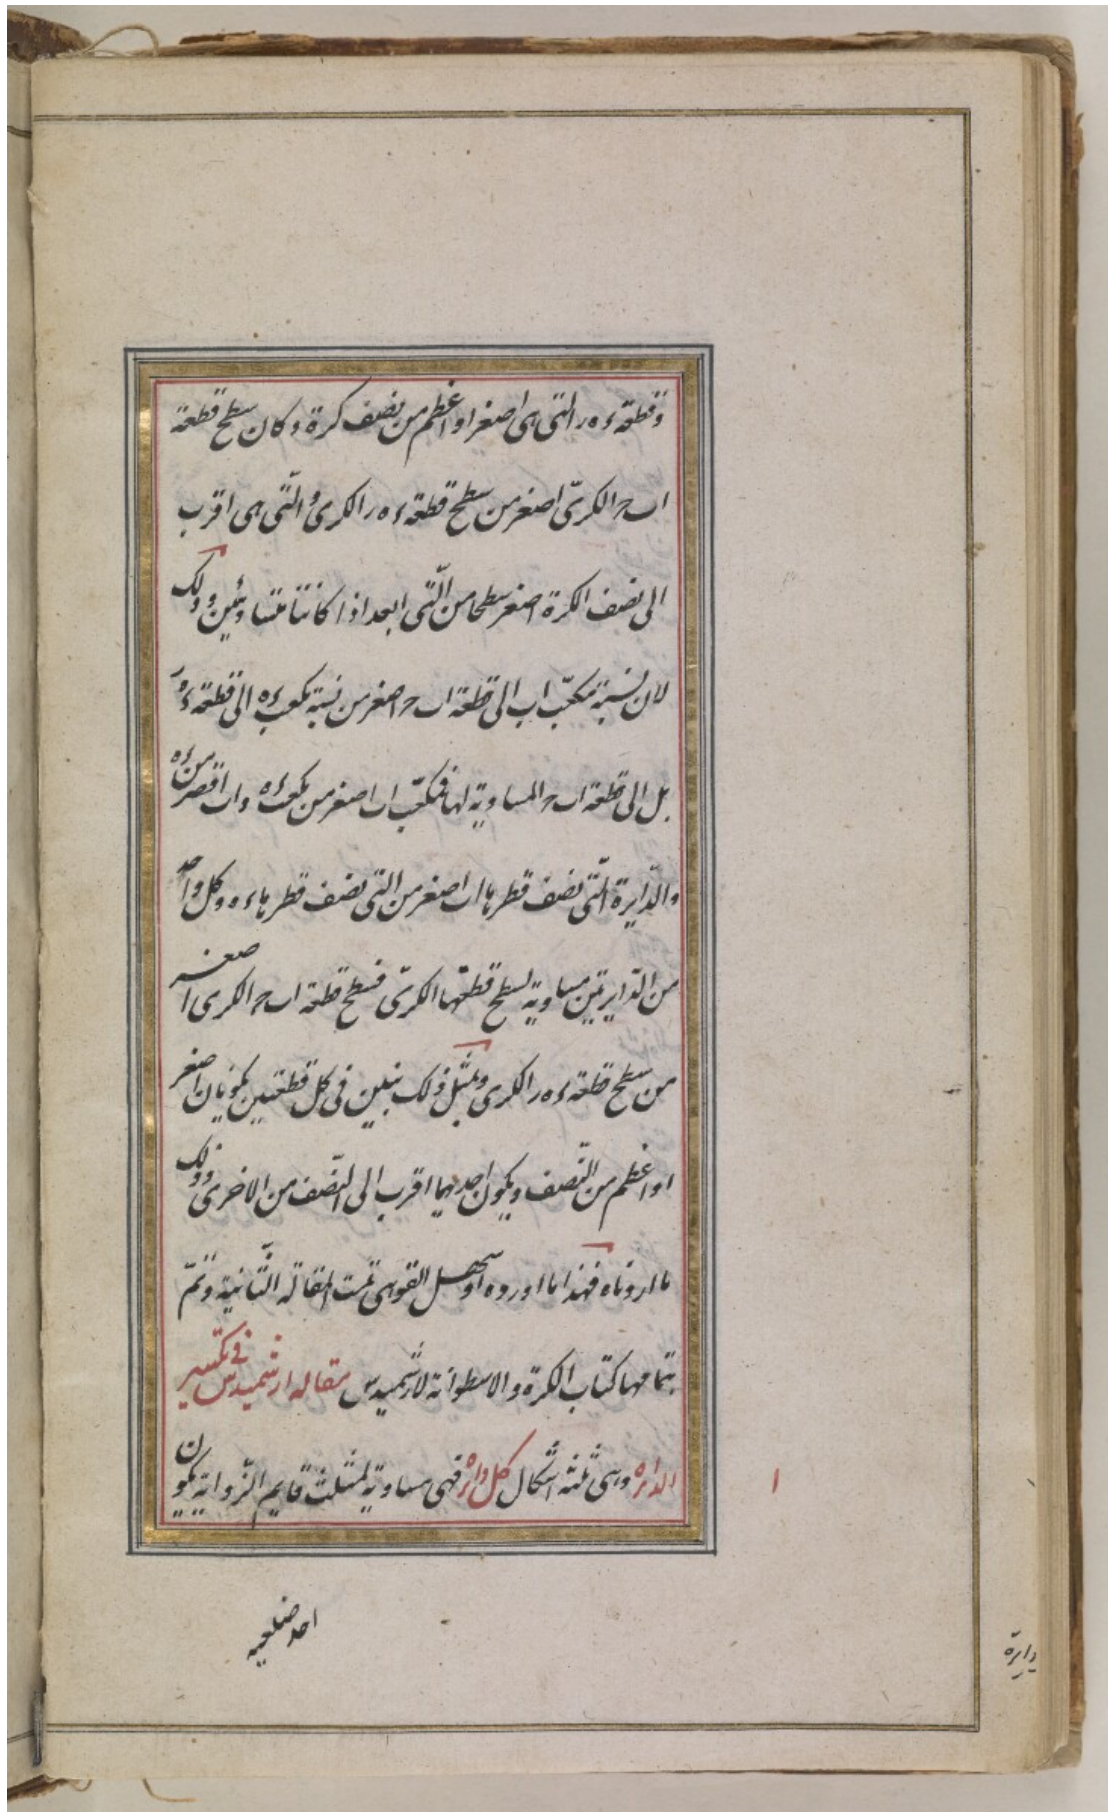 وقطعة ء ه ر التی هی اصغر او اعظم من نصف کرة وکان سطح قطعة
ا ب ح الکریّ اصغر من سطح قطعة ء ه ر الکریّ والتّی هی اقرب
الی نصف الکرة اصغر سطحا من الّتی ابعد اذا کانتا متساویتین وذلک
لان نسبة مکعّب ا ب الی قطعة ا ب ح اصغر من نسبة مکعب ء ه الی قطعة ء ه ر
بل الی قطعة ا ب ح المساویة لها فمکعّب ا ب اصغر من مکعب ء ه و ا ب اقصر من ء ه
والدّایرة الّتی نصف قطرها ا ب اصغر من التی نصف قطرها ء ه وکل واحد
من الدّایرتین مساویة لسطح قطعتها الکریّ فسطح قطعة ا ب ح الکری اصغر
من سطح قطعة ء ه ر الکری وبمثل ذلک نبین فی کل قطعتین یکونان اصغر
او اعظم من النّصف ویکون احدیهما اقرب الی النّصف من الاخری وذلک
ما اردناه فهذا ما اورده ابو سهل القوهی تمت المقالة الثّانیة وتمّ
بتمامها کتاب الکرة والاسطوانة لارشمیدس مقاله ارشمیدس فی تکسیر
الدائرة وهی ثلثه اشکال کل دائرة فهی مساویة لمثلث قایم الزّوایة یکون
۱
احد ضلعیه
دایرة